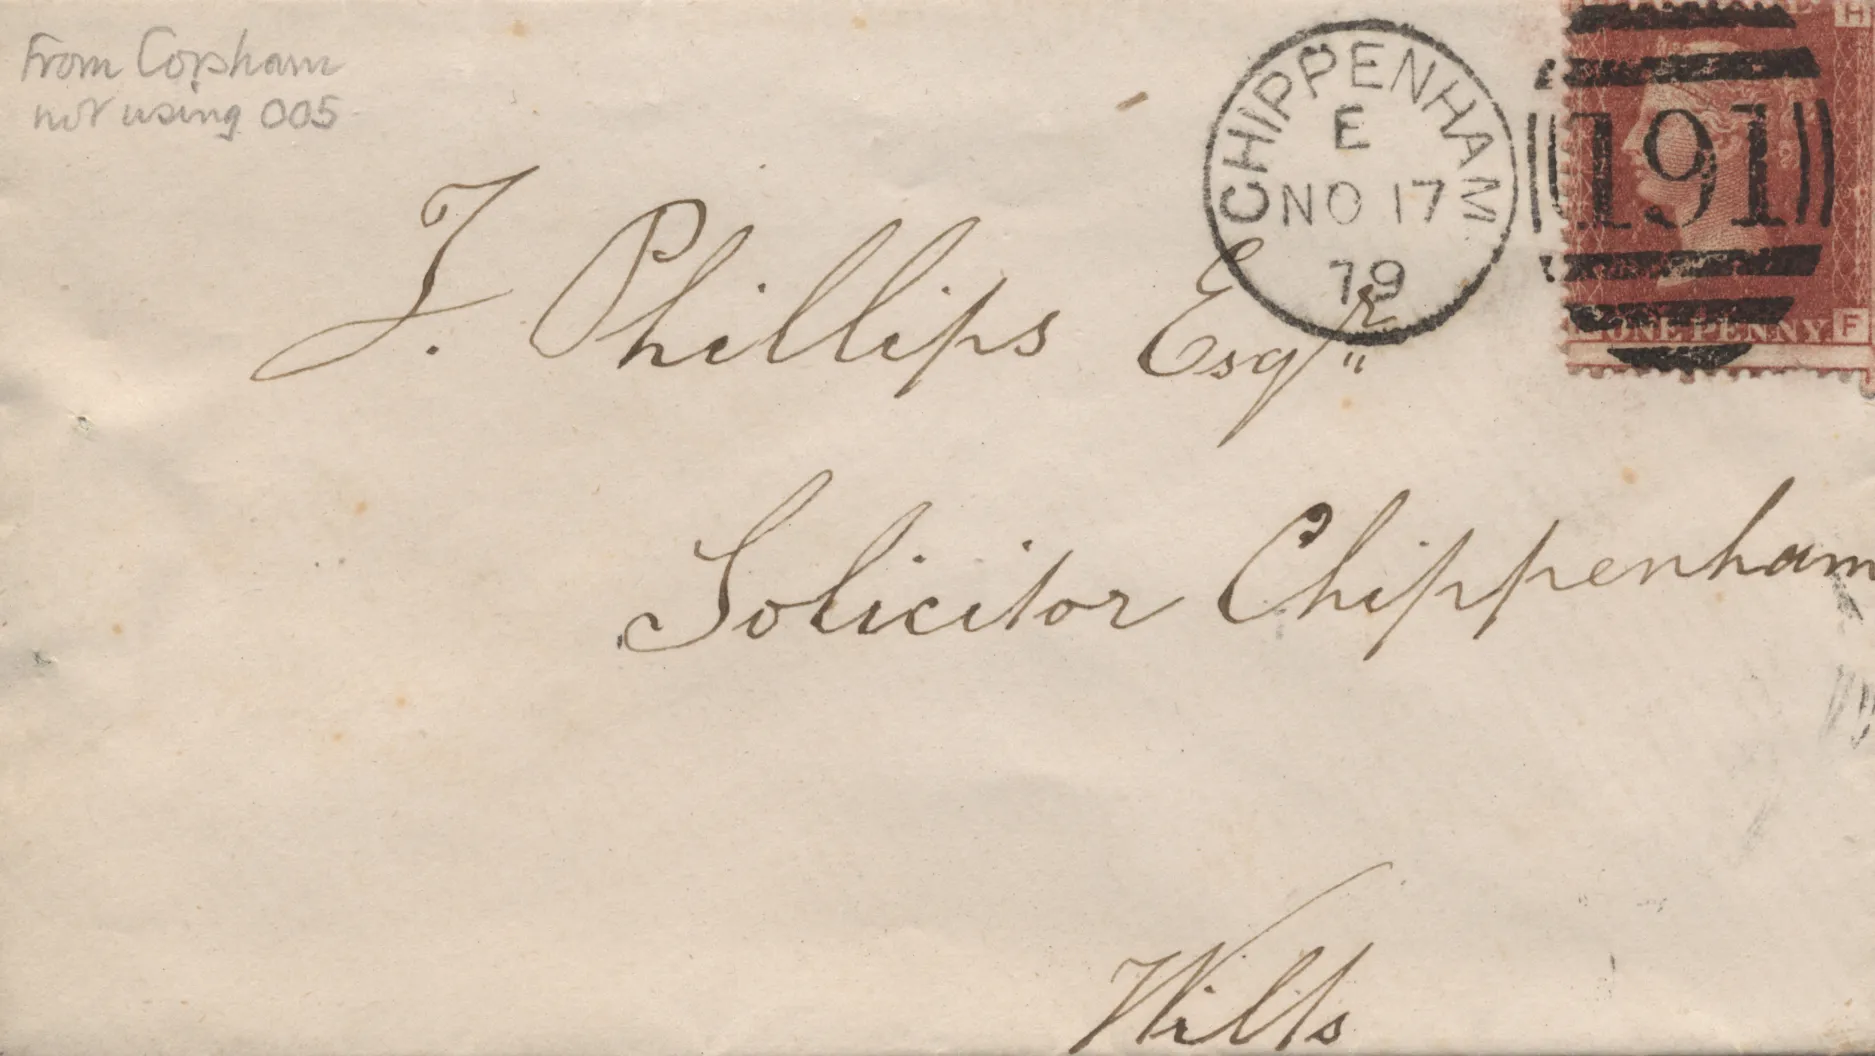 From Corsham
not using 005
CHIPPENHAM
E
NO 17
79
191
H
ONE PENNY
F
J. Phillips Esqr
Solicitor Chippenham
Wilts